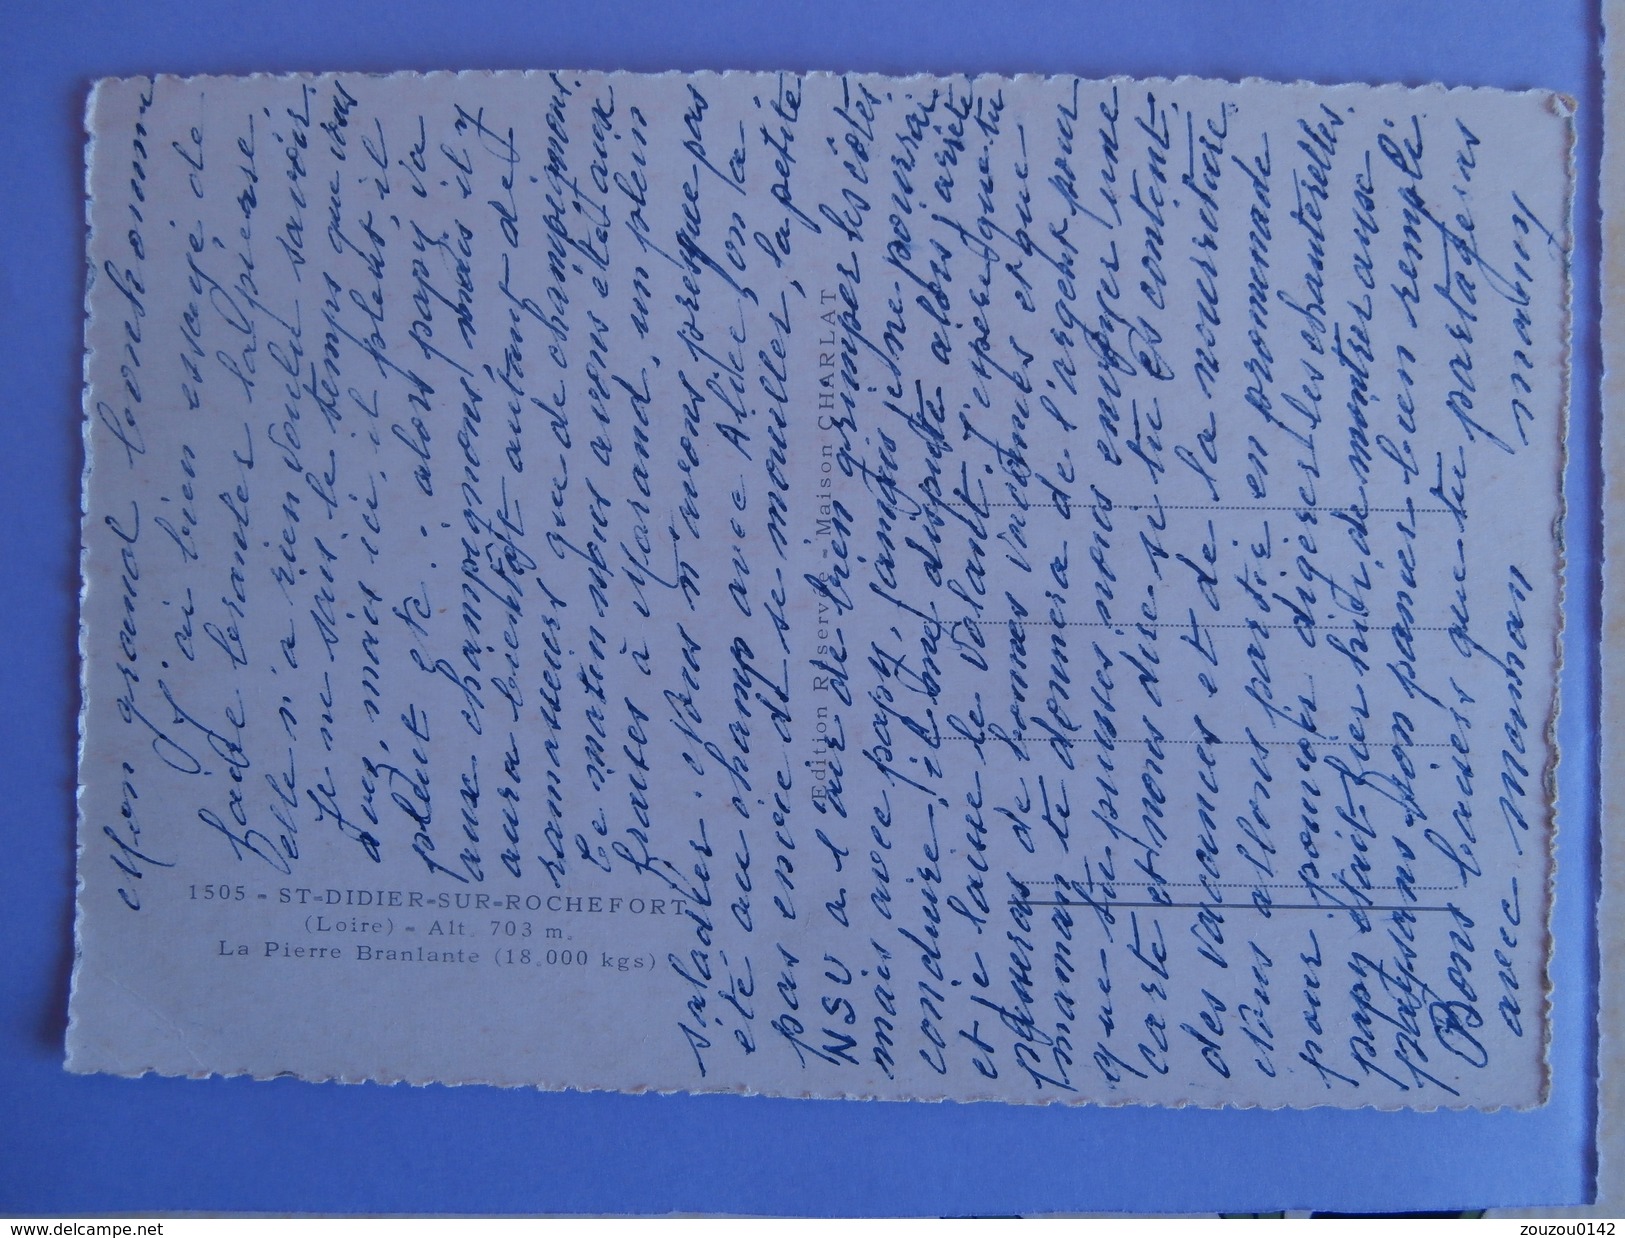 Mon grand bonhomme
J'ai bien essayé de
faire branler la pierre
elle n'a rien voulu savoir.
Je ne sais le temps que vous
avez, mais ici, il pleut, il
pleut etc. alors papy va
aux champignons, mais il y
aura bientôt autant de
ramasseurs que de champignons.
Ce matin nous avons été aux
fraises à Marand, un plein
saladier. Nous n'avons presque pas
été au champ avec Alice, on a
pas envie de se mouiller, la petite
NSU a l'air de bien grimper les côtes
mais avec papy, jamais je ne pourrai
conduire, il me dispute alors j'arrête
et je laisse le volant. J'espère que tu
passeras de bonnes vacances et que
maman te donnera de l'argent pour
que tu puisses nous envoyer une
carte et nous dire si tu es content
des vacances et de la nourriture.
Nous allons partir en promenade
pour pouvoir digérer les chanterelles.
papy était fier hier, de montrer aux
paysans son panier bien rempli.
Bons baisers que tu partageras
avec maman mamy
1505 - ST-DIDIER-SUR-ROCHEFORT
(Loire) - Alt. 703 m.
La Pierre Branlante (18.000 kgs)
Edition Réservée - Maison CHARLAT
www.delcampe.net
zouzou0142